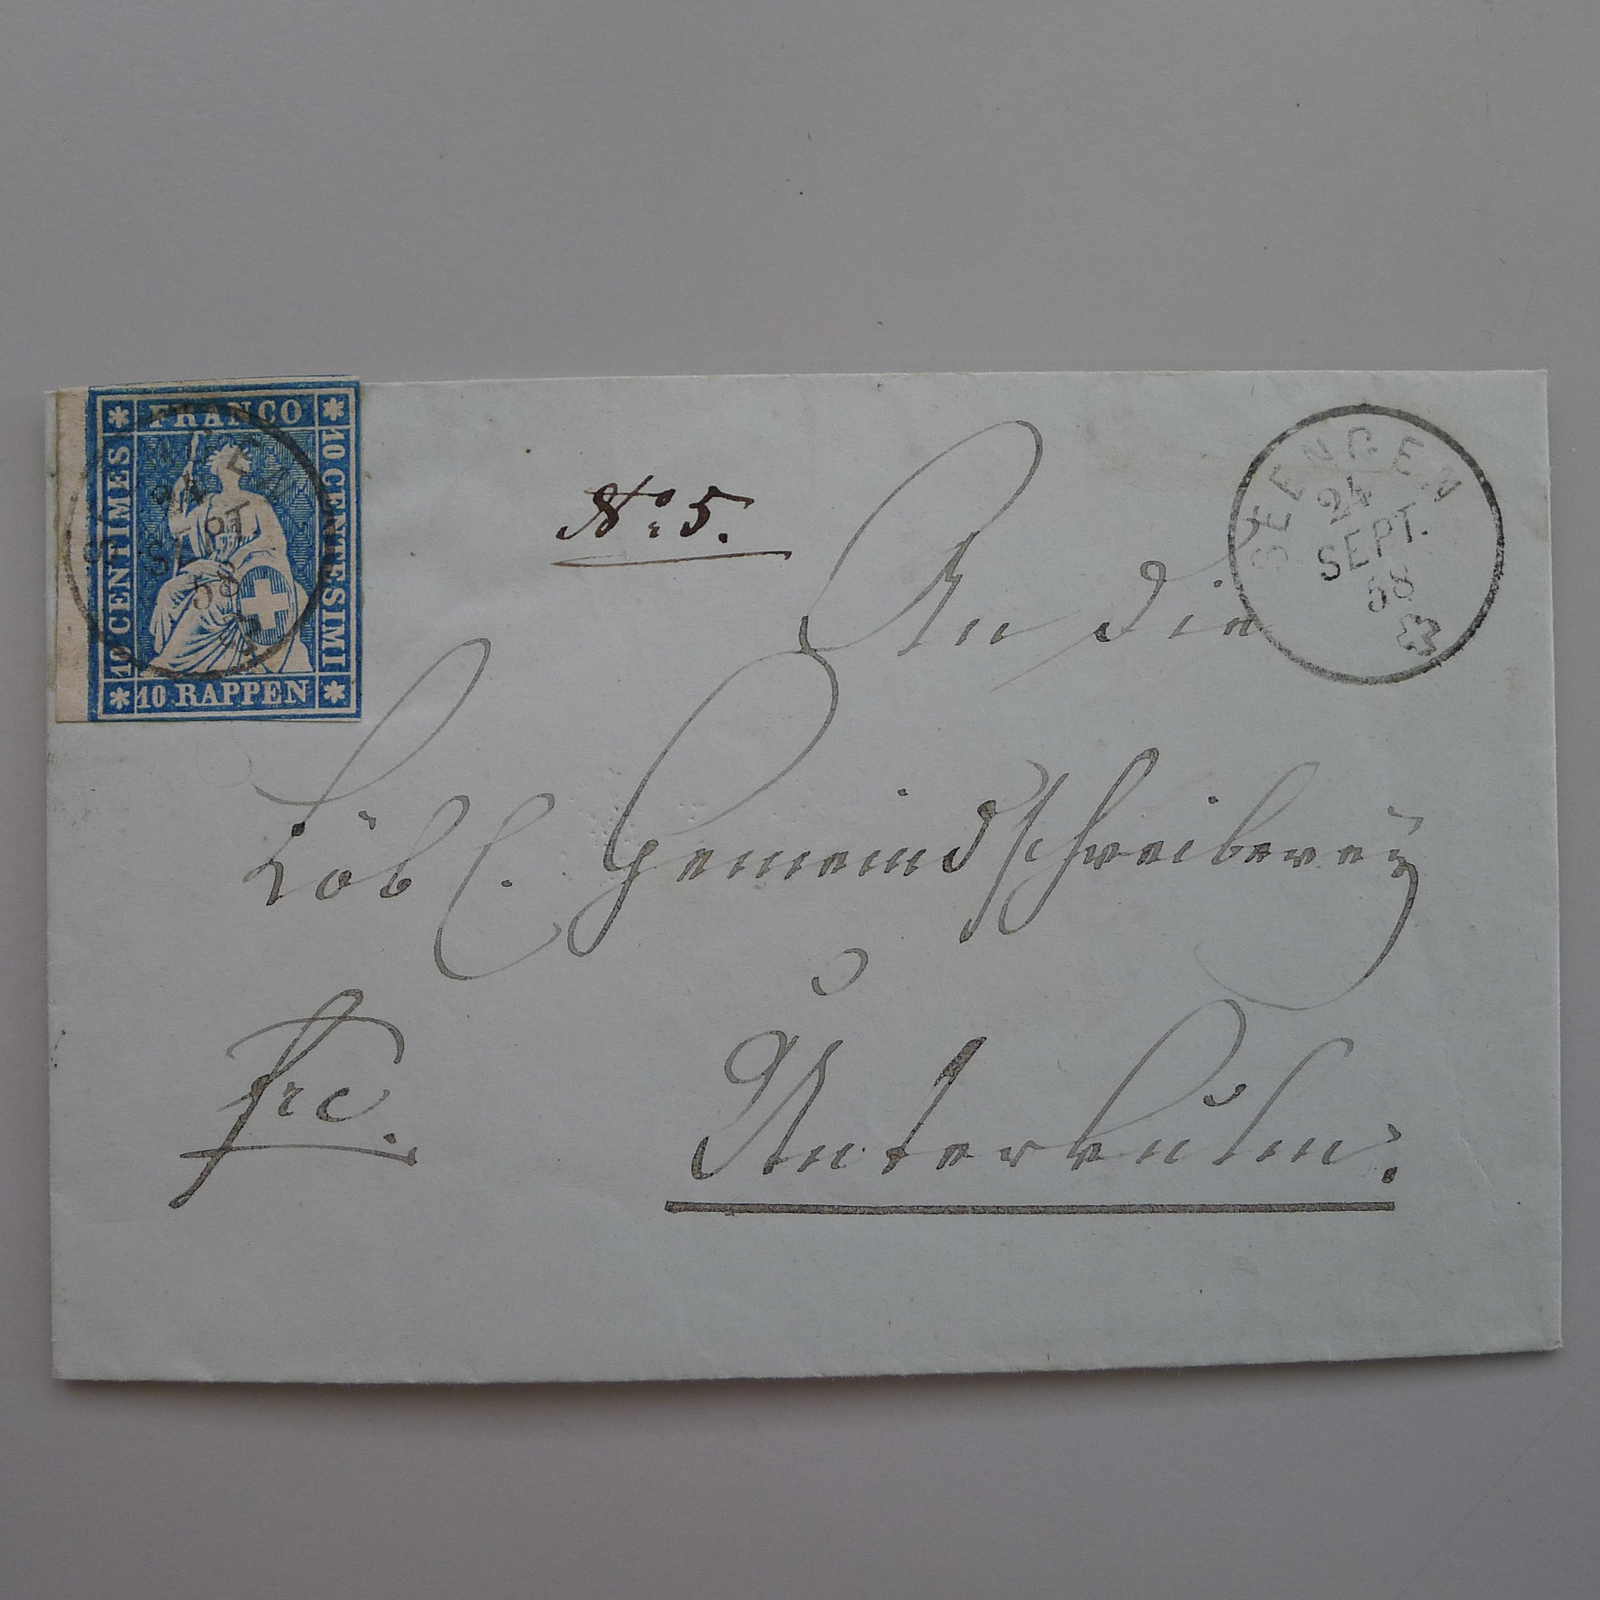 FRANCO
10 CENTIMES
10 CENTESIMI
10 RAPPEN
24
SEPT
58
No. 5.
SEENGEN
24
SEPT.
58
An die
Löbl. Gemeindschreiberey
Unterkulm.
frc.